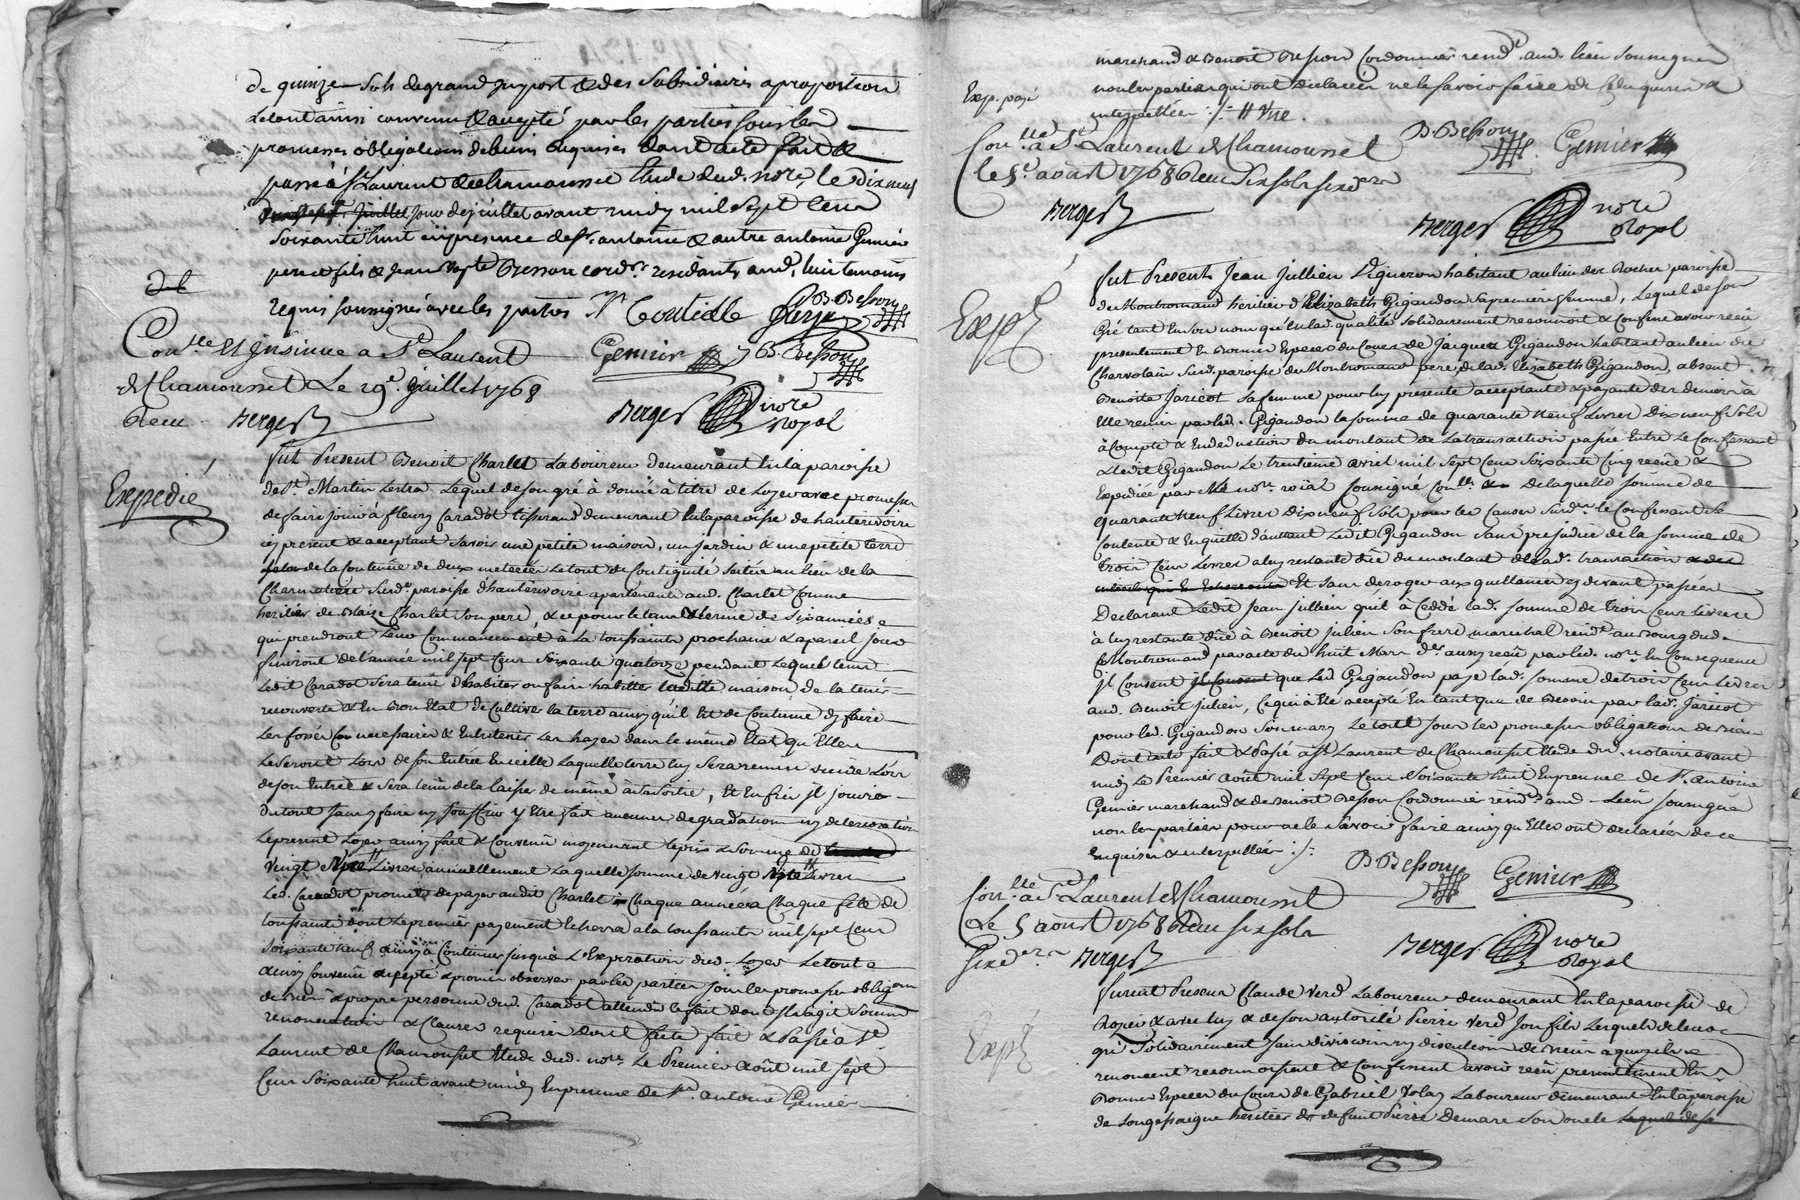 de quinze sols de grand import & des subsidiaires a proportion
Le tout ainsi convenu & accepté par les parties sous les
promesses obligations de biens Requises dont acte fait &
passé à St Laurent de chamousset Etude dud. nore, le dix neuf
Juillet jour de juillet avant midy mil sept cent
soixante huit en presence de sr. antoine & autre antoine Gemier
pere et fils & jean bapte Besson cord.r residants aud. lieu temoins
requis soussignés avec les parties
B Besson
Con.lle Et Insinué a St Laurent
Gemier JB. Besson
de Chamousset Le 29e. Juillet 1768
Reçu Berger
Berger nore
Royal
Expedié
Fut Present Benoit Charlet Laboureur demeurant En la paroisse
de St. Martin Lestra Lequel de son gré à donné à titre de Loyer avec promesse
de faire jouir à fleury Caradot tisserand demeurant En la paroisse de hauterivoire
icy present & acceptant savoir une petite maison, un jardin & une petite terre
de la Contenue de deux meterées Le tout de Contiguité scitué au lieu de la
Charnotiere Susd. paroisse d'hauterivoire apartenants aud. Charlet comme
heritier de Blaize Charlet son pere, & ce pour le tems & terme de six années
qui prendront Leur Commancement à La toussaints prochaine & a pareil jour
finiront de l'année mil sept Cent soixante quatorze pendant Lequel tems
Ledit Caradot sera tenu d'habiter ou faire habitter laditte maison, de la tenir
recouverte & En Bon Etat de Cultiver la terre ainsy qu'il Est de Coutume d'y faire
Les fossés necessaires & Entretenir Les hayes dans le même Etat qu'Elles
Le seront Lors de son Entrée En icelle Laquelle terre luy sera remise vuide Lors
de son Entrée & sera tenu de la laisser de même à sa sortie, Et Enfin il jouira
du tout sans y faire ny souffrir y Etre fait aucunes degradations ny deteriorations
Le present Loyer ainsy fait & Convenu moyennant le prix & somme de
vingt sept Livres annuellement Laquelle somme de vingt sept Livres
Led. Caradot promet de payer audit Charlet Chaque année à Chaque fête de
toussaints dont Le premier payement Echerra a la toussaints mil sept Cent
soixante neuf ainsy à Continuer jusques à L'Expiration dud. Loyer Le tout
ainsy Convenu accepté & promis observer par les parties sous les promesses obligations
de biens & propre personne dud. Caradot attendu le fait dont il s'agit soumissions
renonciations & Clauses requises Dont acte fait & Passé à St.
Laurent de Chamousset Etude dud. nore. Le Premier Août mil sept
Cent soixante huit avant midy En presence de Sr. antoine Gemier
marchand & Benoit Besson Cordonnier resid.ts aud. lieu soussignés
Exp. payé
non les parties qui ont declarées ne le savoir faire de ce Enquises &
interpellées ./. H Vne.
Con.lle a St Laurent de Chamousset
B Besson Gemier
le 5e. aoust 1768 Reçu six sols six d.ers
Berger
Berger nore
Royal
Expé
Fut Present Jean Jullien Vigneron habitant au lieu des Rochet paroisse
de Montromand heritier d'Elizabeth Gigandon sa premiere femme, Lequel de son
Gré tant En son nom qu'En lad. qualité solidairement reconnoit & Confesse avoir reçu
presentement En Bonnes Especes du Cours de Jacques Gigandon habitant au lieu du
Charvolain susd. paroisse de Montromand pere, de lad. Elizabeth Gigandon, absent
Benoite Jaricot sa femme pour luy presente acceptante & payante des deniers à
Elle remis par led. Gigandon la somme de quarante neuf Livres Dix neuf sols
à Compte & En deduction du montant de la transaction passée Entre Le Confessant
& Ledit Gigandon Le trentieme avril mil sept Cent soixante Cinq reçue &
Expediée par Me nore. roïal soussigné Con.llée de laquelle somme de
quarante neuf Livres Dix neuf sols pour les Causes susd.es le Confessant se
Contente & En quitte d'autant Ledit Gigandon sans prejudice de la somme de
trois Cent Livres a luy restante dûe du montant de lad. transaction
Et sans deroger aux quittances cy devant passées
Declarant Ledit Jean Jullien qu'il à Ceddé lad. somme de trois Cent Livres
à luy restante dûe à Benoit Julien son frere marechal resid.t au Bourg dud.
Montromand par acte du huit Mars d.er aussy reçu par led. nore. En Consequence
il Consent que Led. Gigandon paye lad. somme de trois Cent Livres
aud. Benoit Julien, Ce qui à Eté accepté En tant que de Besoin par lad. Jaricot
pour led. Gigandon son mary Le tout sous les promesses obligations de biens
Dont acte fait & Passé à St Laurent de Chamousset Etude du d. notaire avant
midy Le Premier août mil sept Cent soixante huit En presence de Sr. Antoine
Gemier marchand & de Benoit Besson Cordonnier resid.ts aud. Lieu soussignés
non les parties pour ne le savoir faire ainsy qu'Elles ont declarées de ce
Enquises & interpellées ./.
B Besson Gemier
Con.lle a St Laurent de Chamousset
Le 5 aoust 1768 Reçu six sols
six d.ers Berger
Berger nore
Royal
Expé
Furent Presens Claude Verd Laboureur demeurant En la paroisse de
& avec luy & de son autorité Pierre Verd son fils Lesquels de leur
gré solidairement sans division ny discution de biens a quoy ils
renoncent reconnoissent & Confessent avoir reçu presentement En
Bonnes Especes du Cours de Gabriel Laboureur demeurant En la paroisse
de Longessaigne heritier de deffunt Pierre Demare son oncle